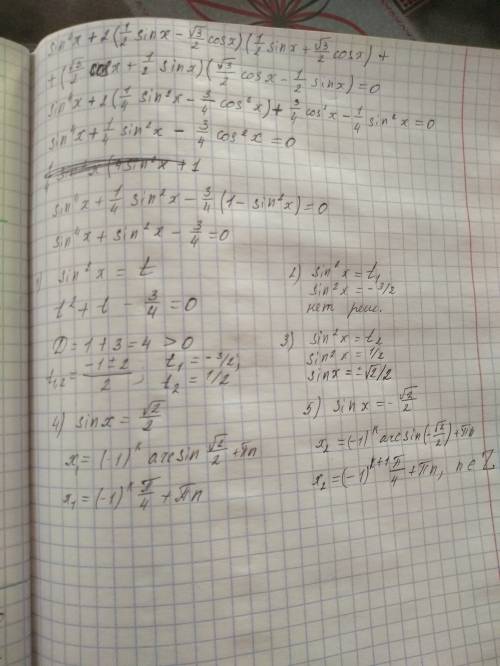 sin⁴x + 2 (1/2 sinx - √3/2 cosx) (1/2 sinx + √3/2 cosx) +
+ (√3/2 cosx + 1/2 sinx) (√3/2 cosx - 1/2 sinx) = 0
sin⁴x + 2 (1/4 sin²x - 3/4 cos²x) + 3/4 cos²x - 1/4 sin²x = 0
sin⁴x + 1/4 sin²x - 3/4 cos²x = 0
sin⁴x + 1/4 sin²x - 3/4 (1 - sin²x) = 0
sin⁴x + sin²x - 3/4 = 0
1) sin²x = t
t² + t - 3/4 = 0
D = 1 + 3 = 4 > 0
t₁,₂ = (-1 ± 2)/2 , t₁ = -3/2;
t₂ = 1/2
2) sin²x = t₁
sin²x = -3/2
нет реш.
3) sin²x = t₂
sin²x = 1/2
sinx = ±√2/2
4) sinx = √2/2
x₁ = (-1)ᵏ arcsin √2/2 + πn
x₁ = (-1)ᵏ π/4 + πn
5) sinx = -√2/2
x₂ = (-1)ᵏ arcsin(-√2/2) + πn
x₂ = (-1)ᵏ⁺¹ π/4 + πn, n ∈ Z